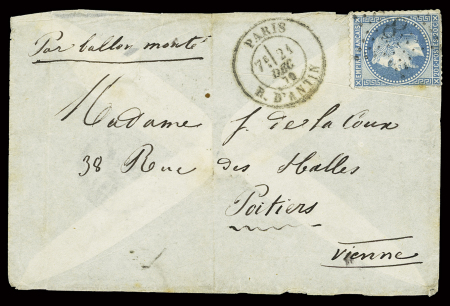 Par ballon monté
PARIS
7E/ 24
DEC
70
R. D'ANTIN
EMPIRE FRANÇAIS
Madame J. de la Coux
38 Rue des Halles
Poitiers
Vienne